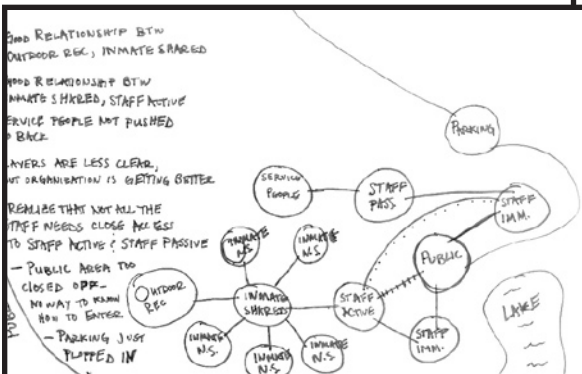 GOOD RELATIONSHIP BTW
OUTDOOR REC, INMATE SHARED
GOOD RELATIONSHIP BTW
INMATE SHARED, STAFF ACTIVE
SERVICE PEOPLE NOT PUSHED
TO BACK
LAYERS ARE LESS CLEAR,
BUT ORGANIZATION IS GETTING BETTER
REALIZE THAT NOT ALL THE
STAFF NEEDS CLOSE ACCESS
TO STAFF ACTIVE & STAFF PASSIVE
- PUBLIC AREA TOO
CLOSED OFF-
NO WAY TO KNOW
HOW TO ENTER
- PARKING JUST
PLOPPED IN
PARKING
SERVICE
PEOPLE
STAFF
PASS.
STAFF
IMM.
INMATE
N.S.
INMATE
N.S.
PUBLIC
OUTDOOR
REC
INMATE
SHARED
STAFF
ACTIVE
LAKE
INMATE
N.S.
INMATE
N.S.
INMATE
N.S.
STAFF
IMM.